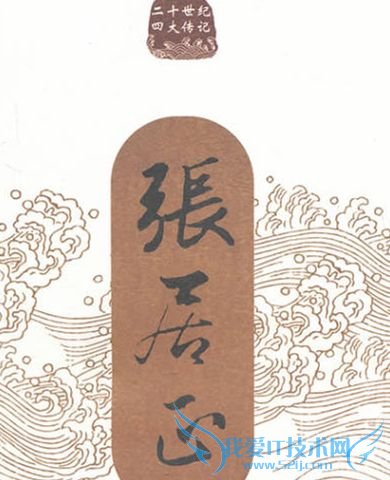 二十世纪
四大传记
張居正
我爱IT技术网
www.52ij.com